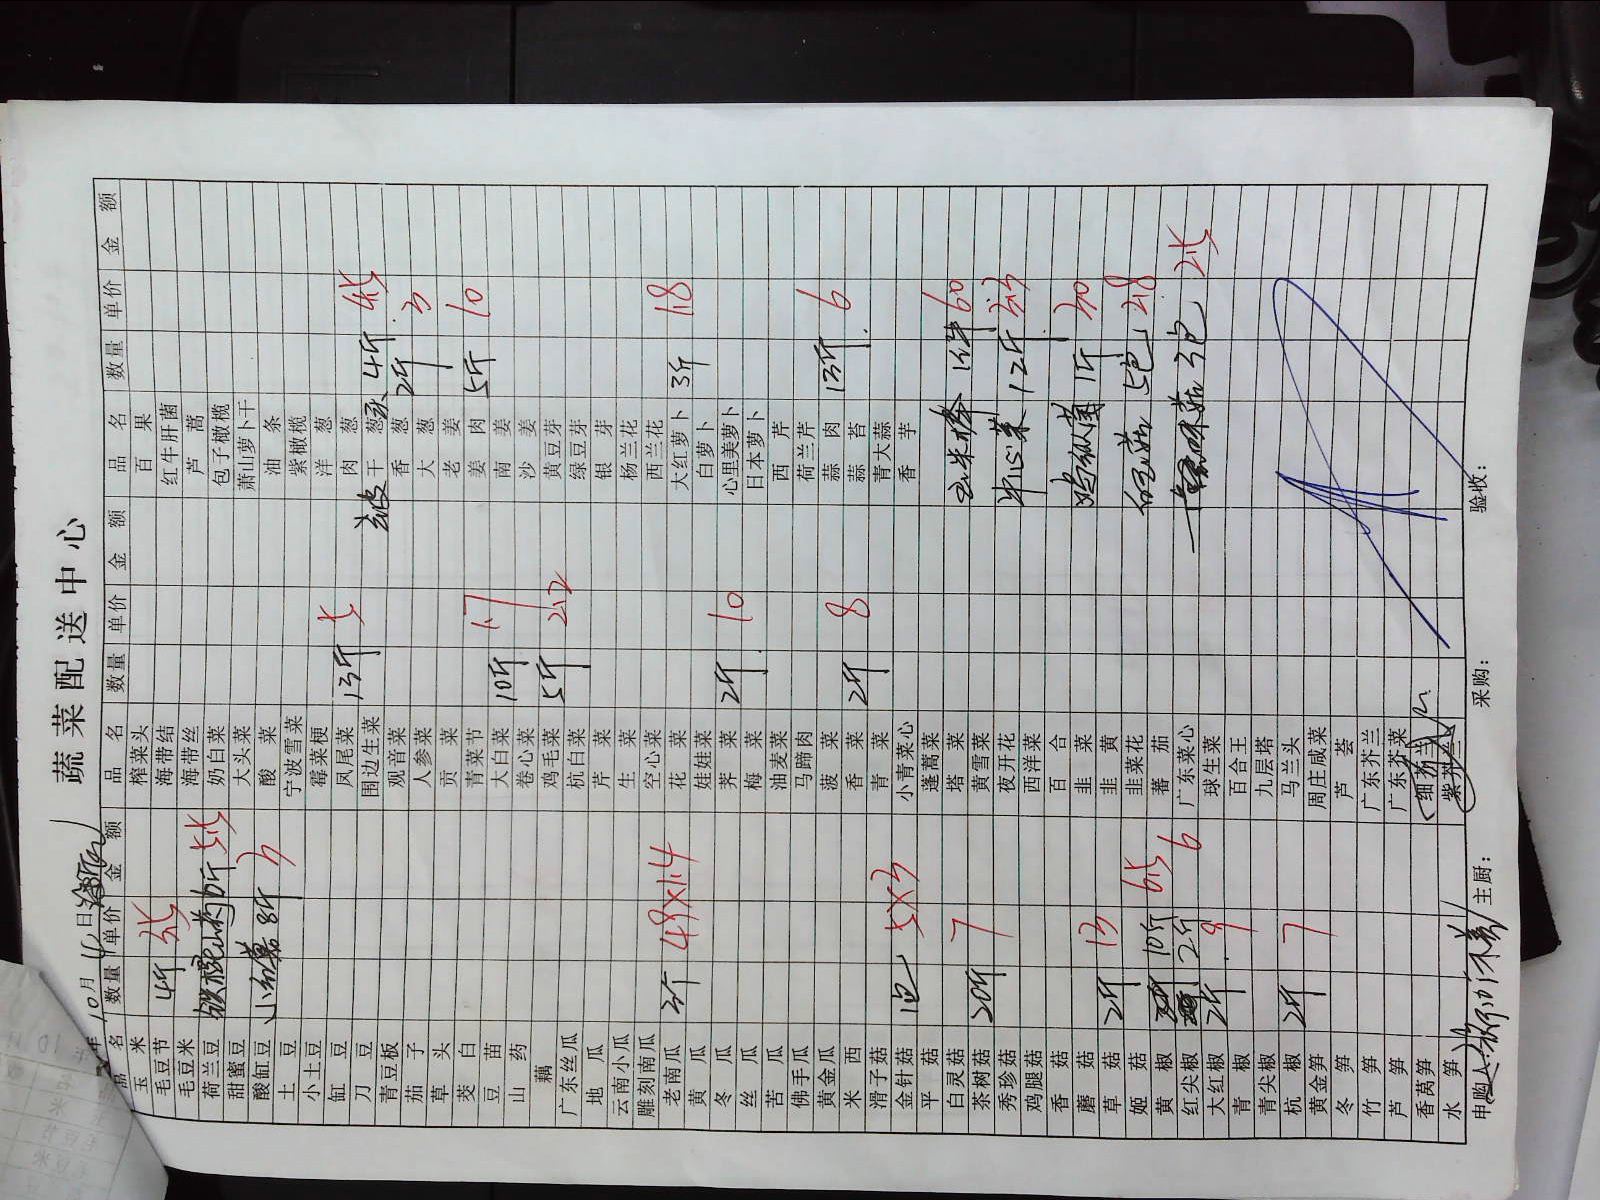 蔬菜配送中心
10月 日
品名 数量 单价 金额 品名 数量 单价 金额 品名 数量 单价 金额
玉米 榨菜头 百果
毛豆节 4斤 海带结 红牛肝菌
毛豆米 海带丝 芦蒿
荷兰豆 奶白菜 包子橄榄
甜蜜豆 大头菜 萧山萝卜干
酸缸豆 8斤 3 酸菜 油条
土豆 宁波雪菜 紫橄榄
小土豆 霉菜梗 洋葱
缸豆 凤尾菜 13斤 肉葱
刀豆 围边生菜 干葱 4斤
青豆板 观音菜 香葱 2斤 3
茄子 人参菜 大葱
草头 贡菜 老姜
茭白 青菜节 姜肉 5斤 10
豆苗 大白菜 10斤 1.7 南姜
山药 卷心菜 沙姜
藕 鸡毛菜 5斤 2.2 黄豆芽
广东丝瓜 杭白菜 绿豆芽
地瓜 芹菜 银芽
云南小瓜 生菜 杨兰花
雕刻南瓜 空心菜 西兰花
老南瓜 3斤 48×1.4 花菜 大红萝卜 3斤 1.8
黄瓜 娃娃菜 白萝卜
冬瓜 荠菜 2斤 10 心里美萝卜
丝瓜 梅菜 日本萝卜
苦瓜 油麦菜 西芹
佛手瓜 马蹄肉 荷兰芹
黄金瓜 菠菜 蒜肉 13斤 6
米西 香菜 2斤 8 蒜苔
滑子菇 青菜 青大蒜
金针菇 1包 5×3 小青菜心 香芋
平菇 蓬蒿菜
白灵菇 塔菜 玉米棒 1件 60
茶树菇 20斤 7 黄雪菜
秀珍菇 夜开花 12斤
鸡腿菇 西洋菜
香菇 百合
蘑菇 韭菜 鸡纵菌 1斤 30
草菇 2斤 13 韭黄
姬菇 韭菜花 白玉菇 5包 2.8
黄椒 10斤 蕃茄
红尖椒 2斤 6 广东菜心 3包
大红椒 2斤 9 球生菜
青椒 百合王
青尖椒 九层塔
杭椒 2斤 7 马兰头
黄金笋 周庄咸菜
冬笋 芦荟
竹笋 广东芥兰
芦笋 广东芥菜
香莴笋 细芥兰
水笋 紫芥兰
申购人: 主厨: 采购: 验收: